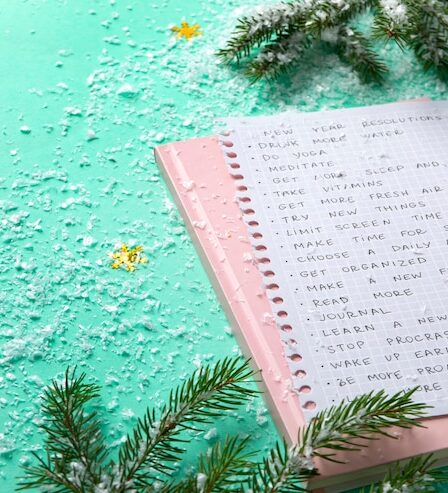 NEW YEAR RESOLUTIONS
· DRINK MORE WATER
· DO YOGA
· MEDITATE
· GET MORE SLEEP AND
· TAKE VITAMINS
· GET MORE FRESH AIR
· TRY NEW THINGS
· LIMIT SCREEN TIME
· MAKE TIME FOR
· CHOOSE A DAILY
· GET ORGANIZED
· MAKE A NEW
· READ MORE
· JOURNAL
· LEARN A NEW
· STOP
· WAKE UP
· BE MORE